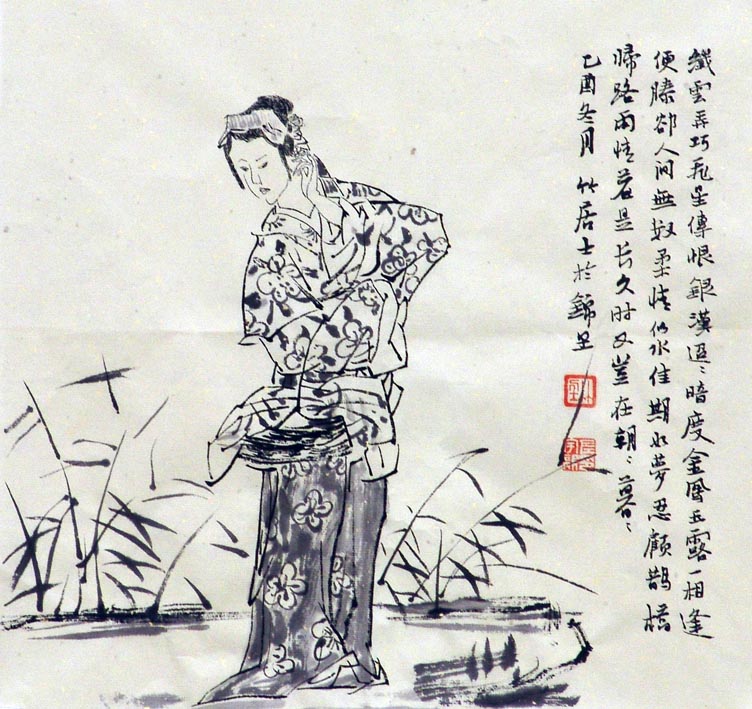 纖雲弄巧飛星傳恨銀漢迢〻暗度金風玉露一相逢
便勝卻人间無數柔情似水佳期如夢忍顧鵲橋
歸路兩情若是长久时又豈在朝〻暮〻
乙酉冬月 竹居士於錦